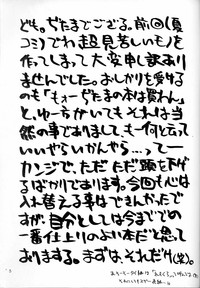 ども。ぢたまでござる。前回(優
コミ)でわ超見苦しいモノを
作ってしまって大変申し訳あり
ませんでした。おしかりを受けるの
も「もォーぢたまの本は買わん」
と、ゆー方がいてもそれは当
然の事でありまして、も一何と云って
いいやらいかんやら…って一
カンジで、ただただ頭を下げ
るばかりであります。今回も心は
入れ替える事はできまんかったで
すが、自分としては今までで
一番仕上りのよい本だと思って
おりまする。まずは、それだけ(笑)。